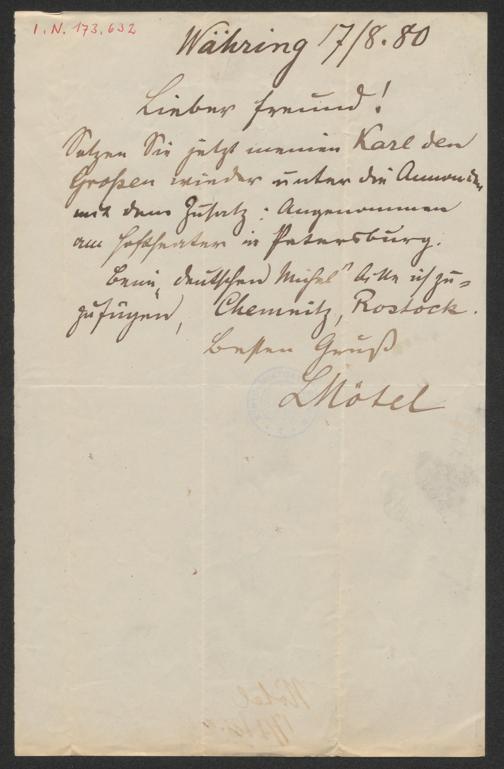 I.N. 173.632
Währing 17/8. 80
Lieber Freund!
Setzen Sie jetzt meinen Karl den
Großen wieder unter die Annoncen
mit dem Zusatz: Angenommen
am Hoftheater in Petersburg.
Beim „deutschen Michel" bitte ich zu=
zufügen, Chemnitz, Rostock.
Besten Gruß